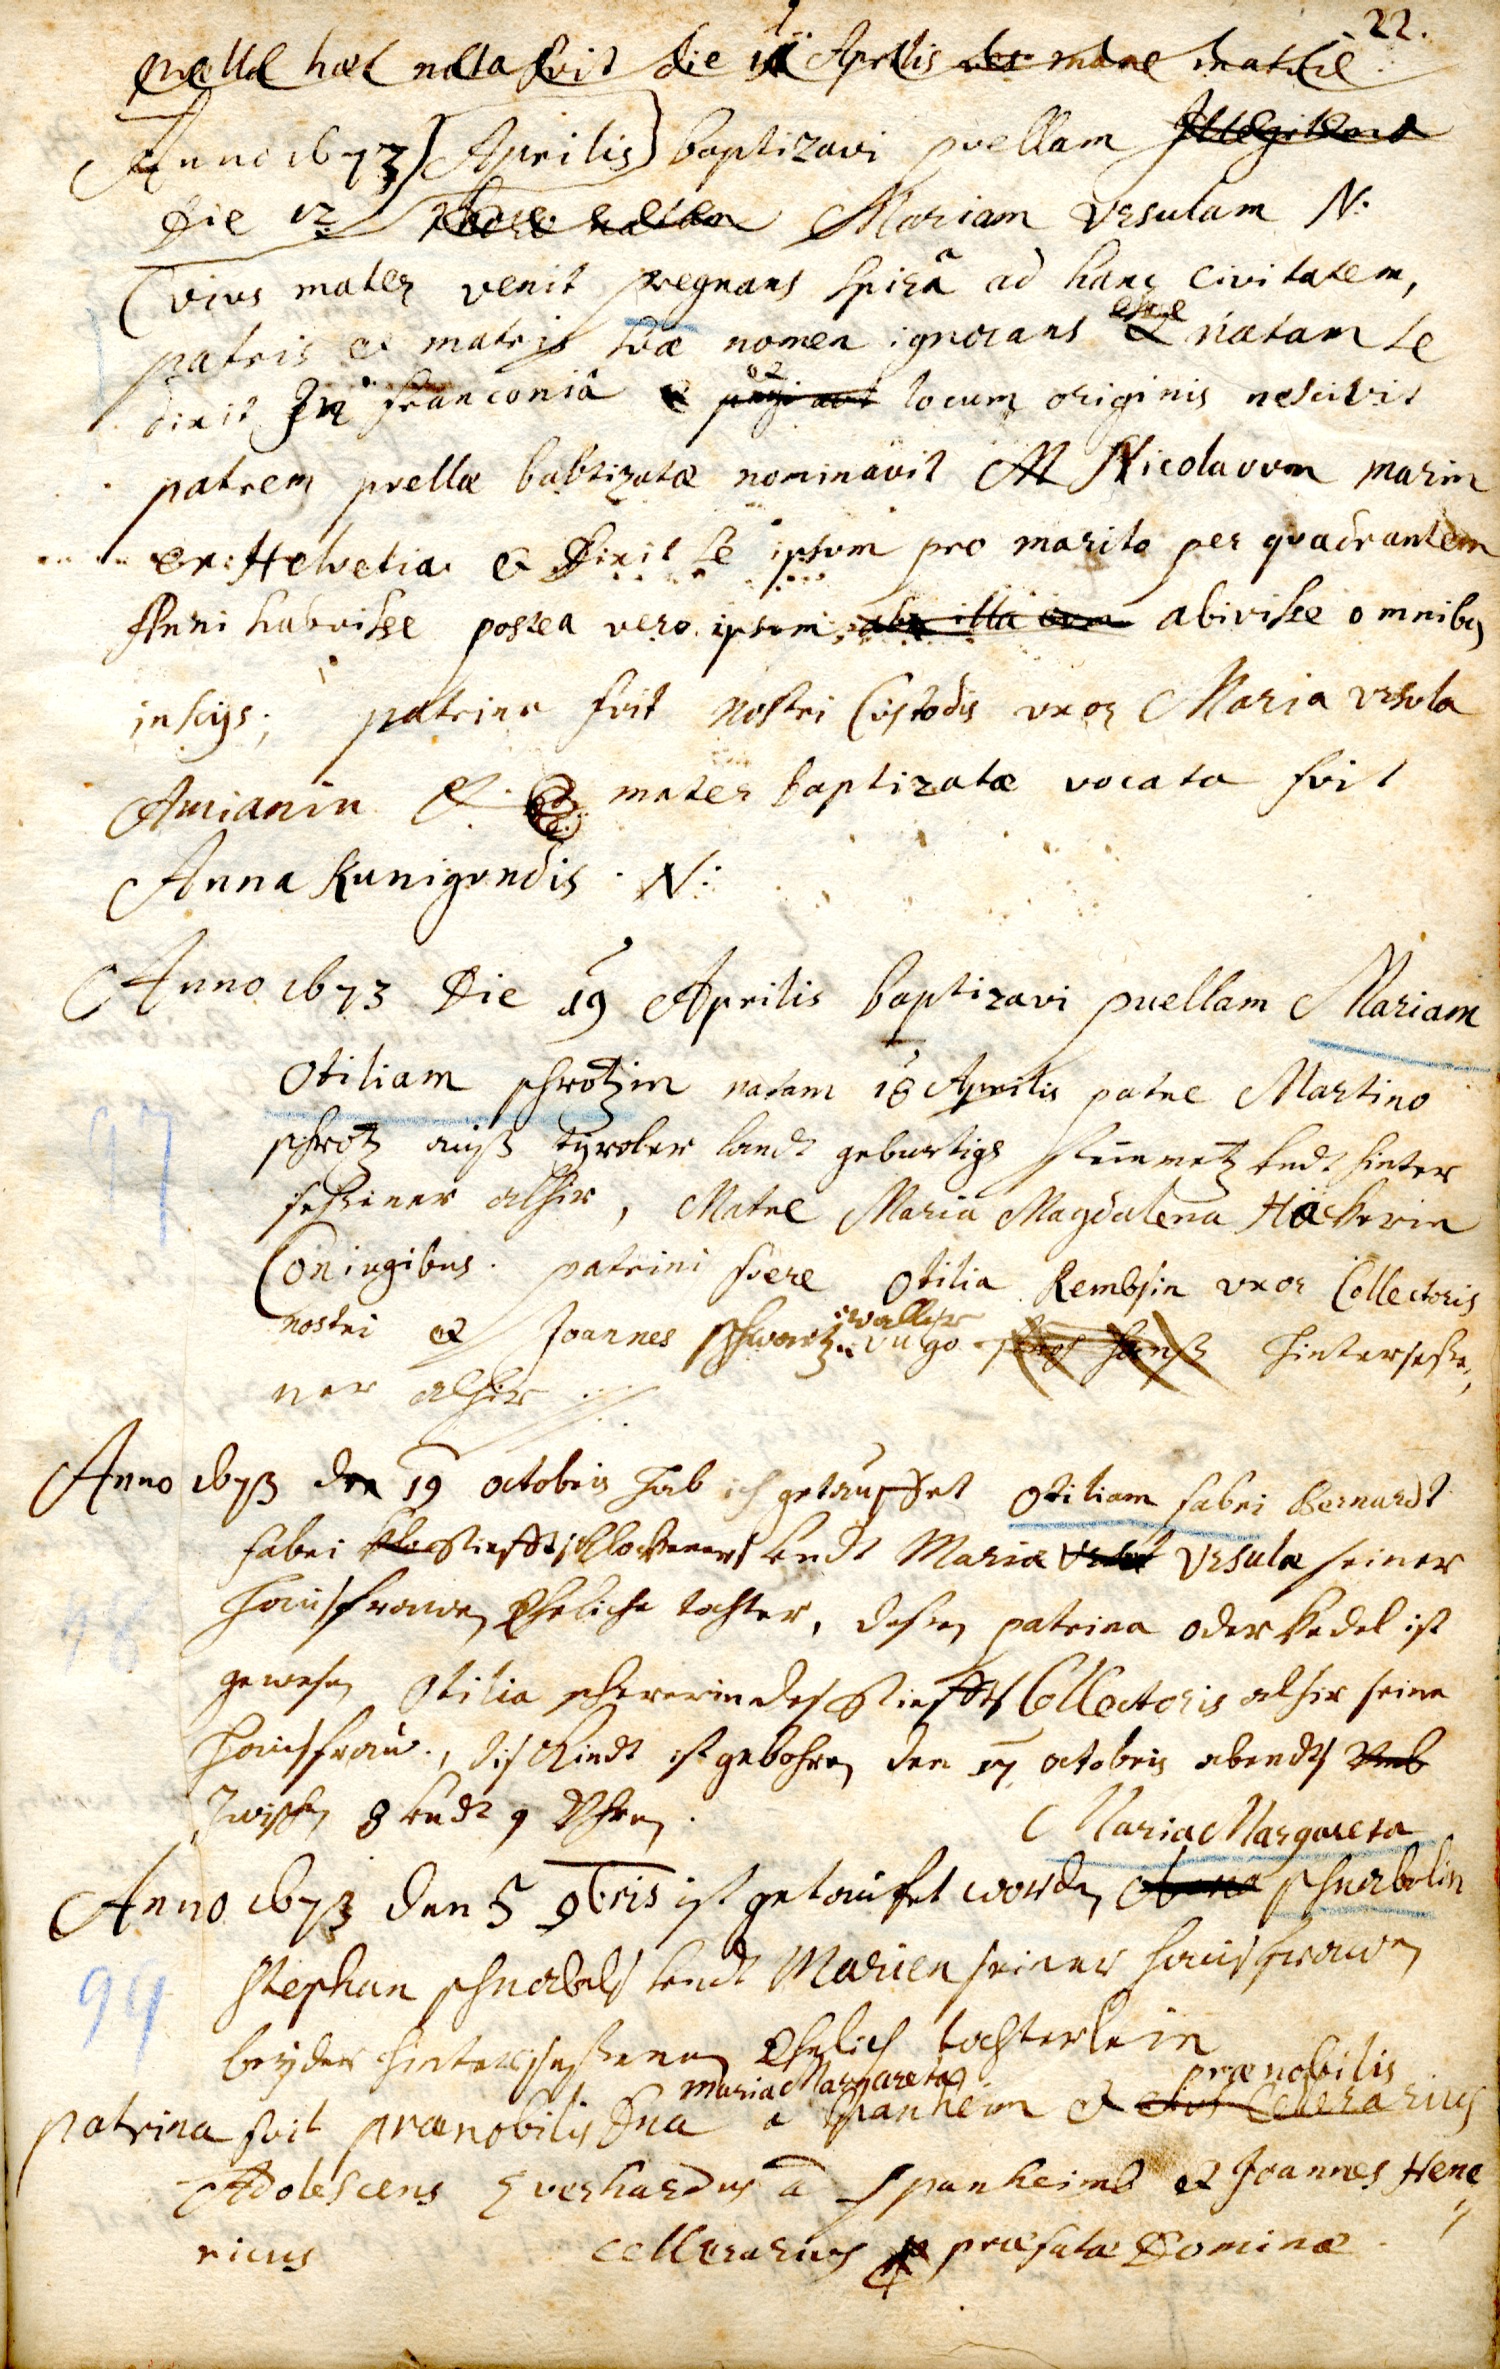 22.
puella haec nata fuit die 11 Aprilis mane
Anno 1673 Aprilis baptizavi puellam
die 12 Mariam Ursulam N:
Cuius mater venit pregnans Spirâ ad hanc civitatem,
patris et matris suae nomen ignorans esse & natam se
dixit In Franconiâ & locum originis nescivit
patrem puellae babtizatae nominavit M Nicolauum marin
ex: Helvetia & Dixit se ipsum pro marito per quadrantem
Anni habuisse postea vero ipsum abivisse omnibus
inscijs; patrina fuit nostri Custodis uxor Maria Ursula
Amianin & mater baptizatae vocata fuit
Anna Kunigundis N:
Anno 1673 Die 19 Aprilis baptizavi puellam Mariam
Otiliam schrotzin natam 18 Aprilis patre Martino
schrotz auß tyroler landt geburtigs steinmetz undt hinter
seßener alhir, Matre Maria Magdalena Hackerin
Coniugibus. patrini fuere Otilia Rembsin uxor Collectoris
nostri et Joannes schwartzwaller vulgo hanß hinterseße,
ner alhir
Anno 1673 den 19 octobris hab ich getauffet Otiliam fabri Bernardt
fabri Stiefft undt Mariae Ursulae seiner
haußfrawen Eheliche tochter, deßen patrina oder Pedel ist
gewesen Otilia des Stieffts Collectoris alhir seine
haußfrau., dis Kindt ist gebohren den 17 octobris abendts
Zwischen 8 undt 9 Uhren.
Maria Margareta
Anno 1673 den 5 9bris ist getaufet worden schnabelin
stephan schnabels undt Marien seiner haußfrawen
beyder hinterseßenen Ehelich tochterlein
Maria Margareta praenobilis
patrina fuit praenobilis Dna a Spanheim & Cellerarius
Adolescens Everhardus a Spanheimb & Joannes Hene
ricus cellerarius praefatae Dominae.
97
98
99